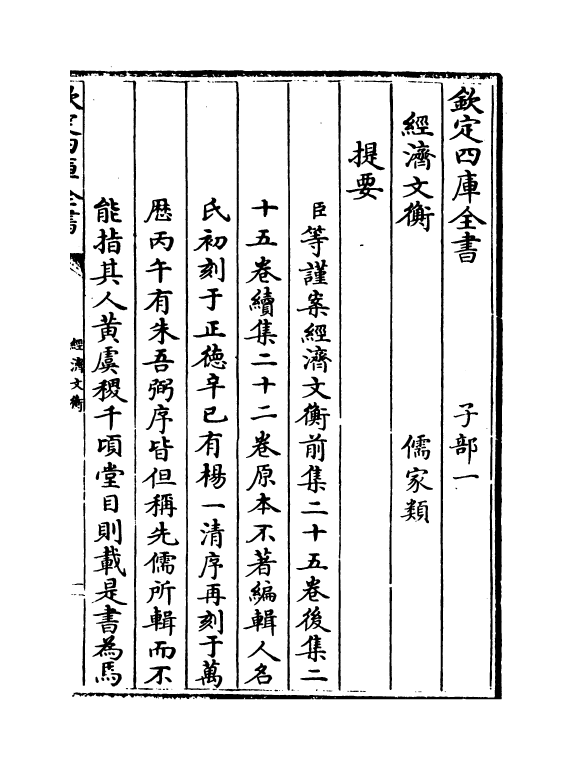 欽定四庫全書　子部一
經濟文衡　儒家類
提要
臣等謹案經濟文衡前集二十五卷後集二
十五卷續集二十二卷原本不著編輯人名
氏初刻于正德辛巳有楊一清序再刻于萬
歴丙午有朱吾弼序皆但稱先儒所輯而不
能指其人黄虞稷千頃堂目則載是書為馬
欽定四庫全書
經濟文衡
一